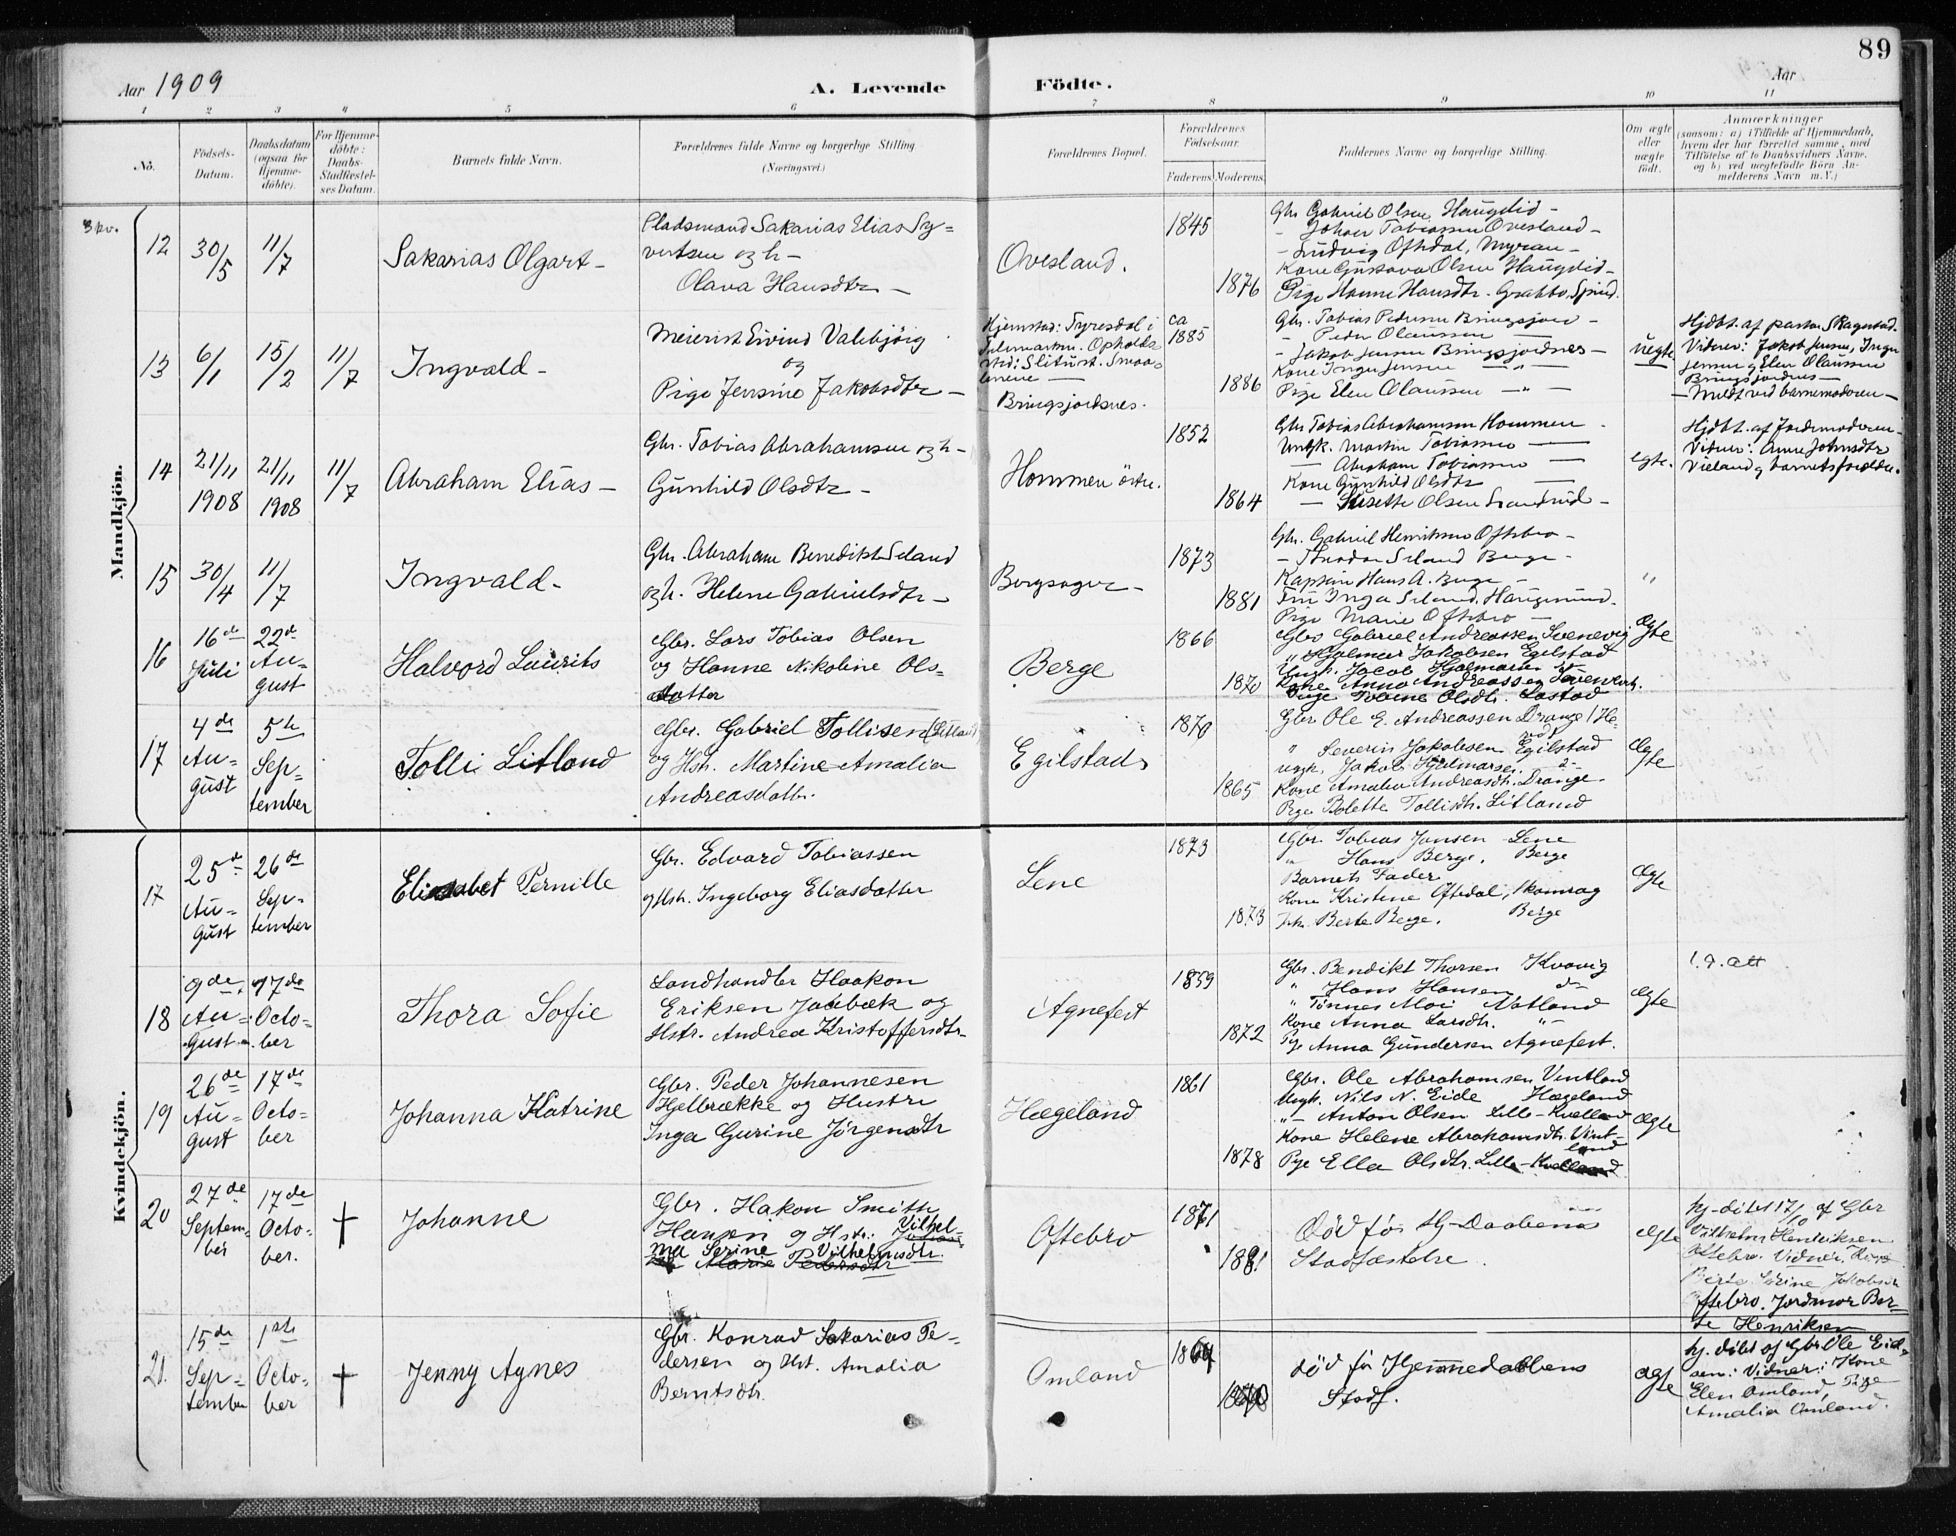 89
Aar 1909
A. Levende Födte.
Aar
1 2 3 4 5 6 7 8 9 10 11
No.
Födsels-Datum.
Daabsdatum (ogsaa for Hjemme-döbte).
For Hjemme-döbte: Daabs-Stadfæstel-ses Datum.
Barnets fulde Navn.
Forældrenes fulde Navne og borgerlige Stilling. (Næringsvei.)
Forældrenes Bopæl.
Forældrenes Födselsaar.
Faderens. Moderens.
Faddernes Navne og borgerlige Stilling.
Om ægte eller uægte födt.
Anmærkninger
(saasom: a) i Tilfælde af Hjemmedaab,
hvem der har forrettet samme, med
Tilföielse af to Daabsvidners Navne,
og b) ved uægtefödte Börn An-
melderens Navn m.V.)
Mandkjön.
12
30/5
11/7
Sakarias Olgart-
Pladsmand Sakarias Elias Sy=
vertsen og h-
Olava Hansdtr -
Ovesland.
1845
1876
Gbr Gabriel Olsen Haugdid-
- Johan Tobiassen Ovesland-
- Ludvig Oftedal, Myran-
Kone Gustava Olsen Haugdid-
Pige Hanne Hansdtr.
13
6/1
15/2
11/7
Ingvald-
Meierist Eivind Valebjörg
og
Pige Jensine Jakobsdtr-
Hjemstad: Tyresdal i
Telemarken. Opholds
Bringsjordsnes.
ca 1885
1886
Gbr. Tobias Pedersen Bringsjord-
- Peder Olaussen
- Jakob Jensen Bringsjordnes-
Kone Inger Jensen -"-
Pige Elen Olaussen -"-
uegte
Hjdbt. af pastor Skagestad.
Vidner: Jakob Jensen, Inger
Jensen og Elen Olaussen
Bringsjordnes-
- Meldt ved barnemoderen-
14
21/11 1908
21/11 1908
11/7
Abraham Elias-
Gbr. Tobias Abrahamsen og h-
Gunhild Olsdtr-
Hommen östre.
1852
1864
Gbr Tobias Abrahamsen Hommen
Ungk. Martin Tobiassen
- Abraham Tobiassen
Kone Gunhild Olsdtr
egte.
Hjdbt. af Jordemoderen-
Vidner: Anne Johnsdtr
Vieland og barnets forældre.
15
30/4
11/7
Ingvald-
Gbr. Abraham Benedikt Seland
og h. Helene Gabrielsdtr-
Bergsager-
1873
1881
Gbr. Gabriel Henriksen Oftebro-
- Teodor Seland Berge-
Kaptein Hans A. Berge-
Fru Inga Seland, Haugesund.
Pige Marie Oftebro-
"
16
16de Juli
22de August
Halvord Laurits
Gbr. Lars Tobias Olsen
og Hanne Nikoline Ols-
datter
Berge
1866
1870
Gbr Gabriel Andreassen Svenevig
" Hjalmer Jakobsen Egilstad
Ungk. Jacob Hjalmarsen
Kone Anna Andreassen Svenevig
Pige Tobine Olsdtr.
Ægte
17
4de August
5te September
Tolli Litland
Gbr. Gabriel Tollisen (Litland)
og Hstr. Martine Amalia
Andreasdatter.
Egilstad
1870
1865
Gbr Ole E. Andreassen Drange (He-
red)
" Severin Jakobsen Egilstad
ungk. Jakob Hjelmarsen
Kone Amalia Andreasdtr. Drange.
Pige Bolette Tollisdtr. Litland
Ægte
Kvindekjön.
17
25de August
26de September
Elisabet Pernille
Gbr. Edvard Tobiassen
og Hstr. Ingeborg Eliasdatter
Lene
1873
1873
Gbr. Tobias Jansen Lene
" Hans Berge. Berge
Barnets Fader
Kone Kristine Oftedal,
Berte Berge. Berge
Ægte
18
9de August
17de October
Thora Sofie
Landhandler Haakon
Eriksen Jaabæk og
Hstr. Andrea Kristoffersdtr.
Agnefest
1859
1872
Gbr. Bendikt Thorsen Kvavig
" Hans Hansen do
" Tönnes Moi Natland
Kone Anna Larsdtr. "-
Pige Anna Gundersen Agnefest.
Ægte
19
26de August
17de October
Johanna Katrine
Gbr. Peder Johannesen
Hjelbrække og Hustru
Inga Gurine Jørgensdtr
Hægeland
1861
1878
Gbr. Ole Abrahamsen Vintland
Ungk. Nils N. Eide Hægeland
"- Anton Olsen Lille-Kvelland
Kone Helene Abrahamsdtr. Vint-
land
Pige Ella Olsdtr. Lille-Kvelland
Ægte
20
27de September
17de October.
†
Johanne
Gbr. Hakon Smith
Hansen og Hstr. Vilhel-
ma Serine Vilhelmsdtr.
Marie Pedersdtr
Oftebro
1871
1881
Död för Hj-Daabens
Stadfæstelse.
Ægte
hj-döbt 17/10 af Gbr
Vilhelm Henriksen
Oftebro. Vidner: Kone
Berte Serine Jakobsdtr
Oftebro. Jordmor Ber-
te Henriksen
21.
15de September
1ste October
†
Jenny Agnes
Gbr. Konrad Sakarias Pe-
dersen og Hst. Amalia
Berntsdtr.
Omland
död för Hjemmedaabens
Stadf.
ægte
hj. döbt af Gbr Ole Eid-
sen: Vidner: Kone
Elen Omland, Pige
Amalia Omland.